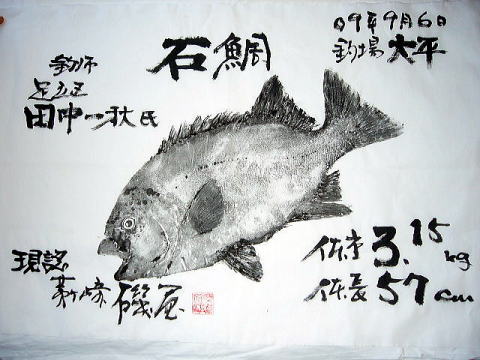 石鯛
09年9月6日
釣場 大平
釣師
足立区
田中一秋氏
体重 3.15kg
体長 57cm
現認
茅ヶ崎 磯屋